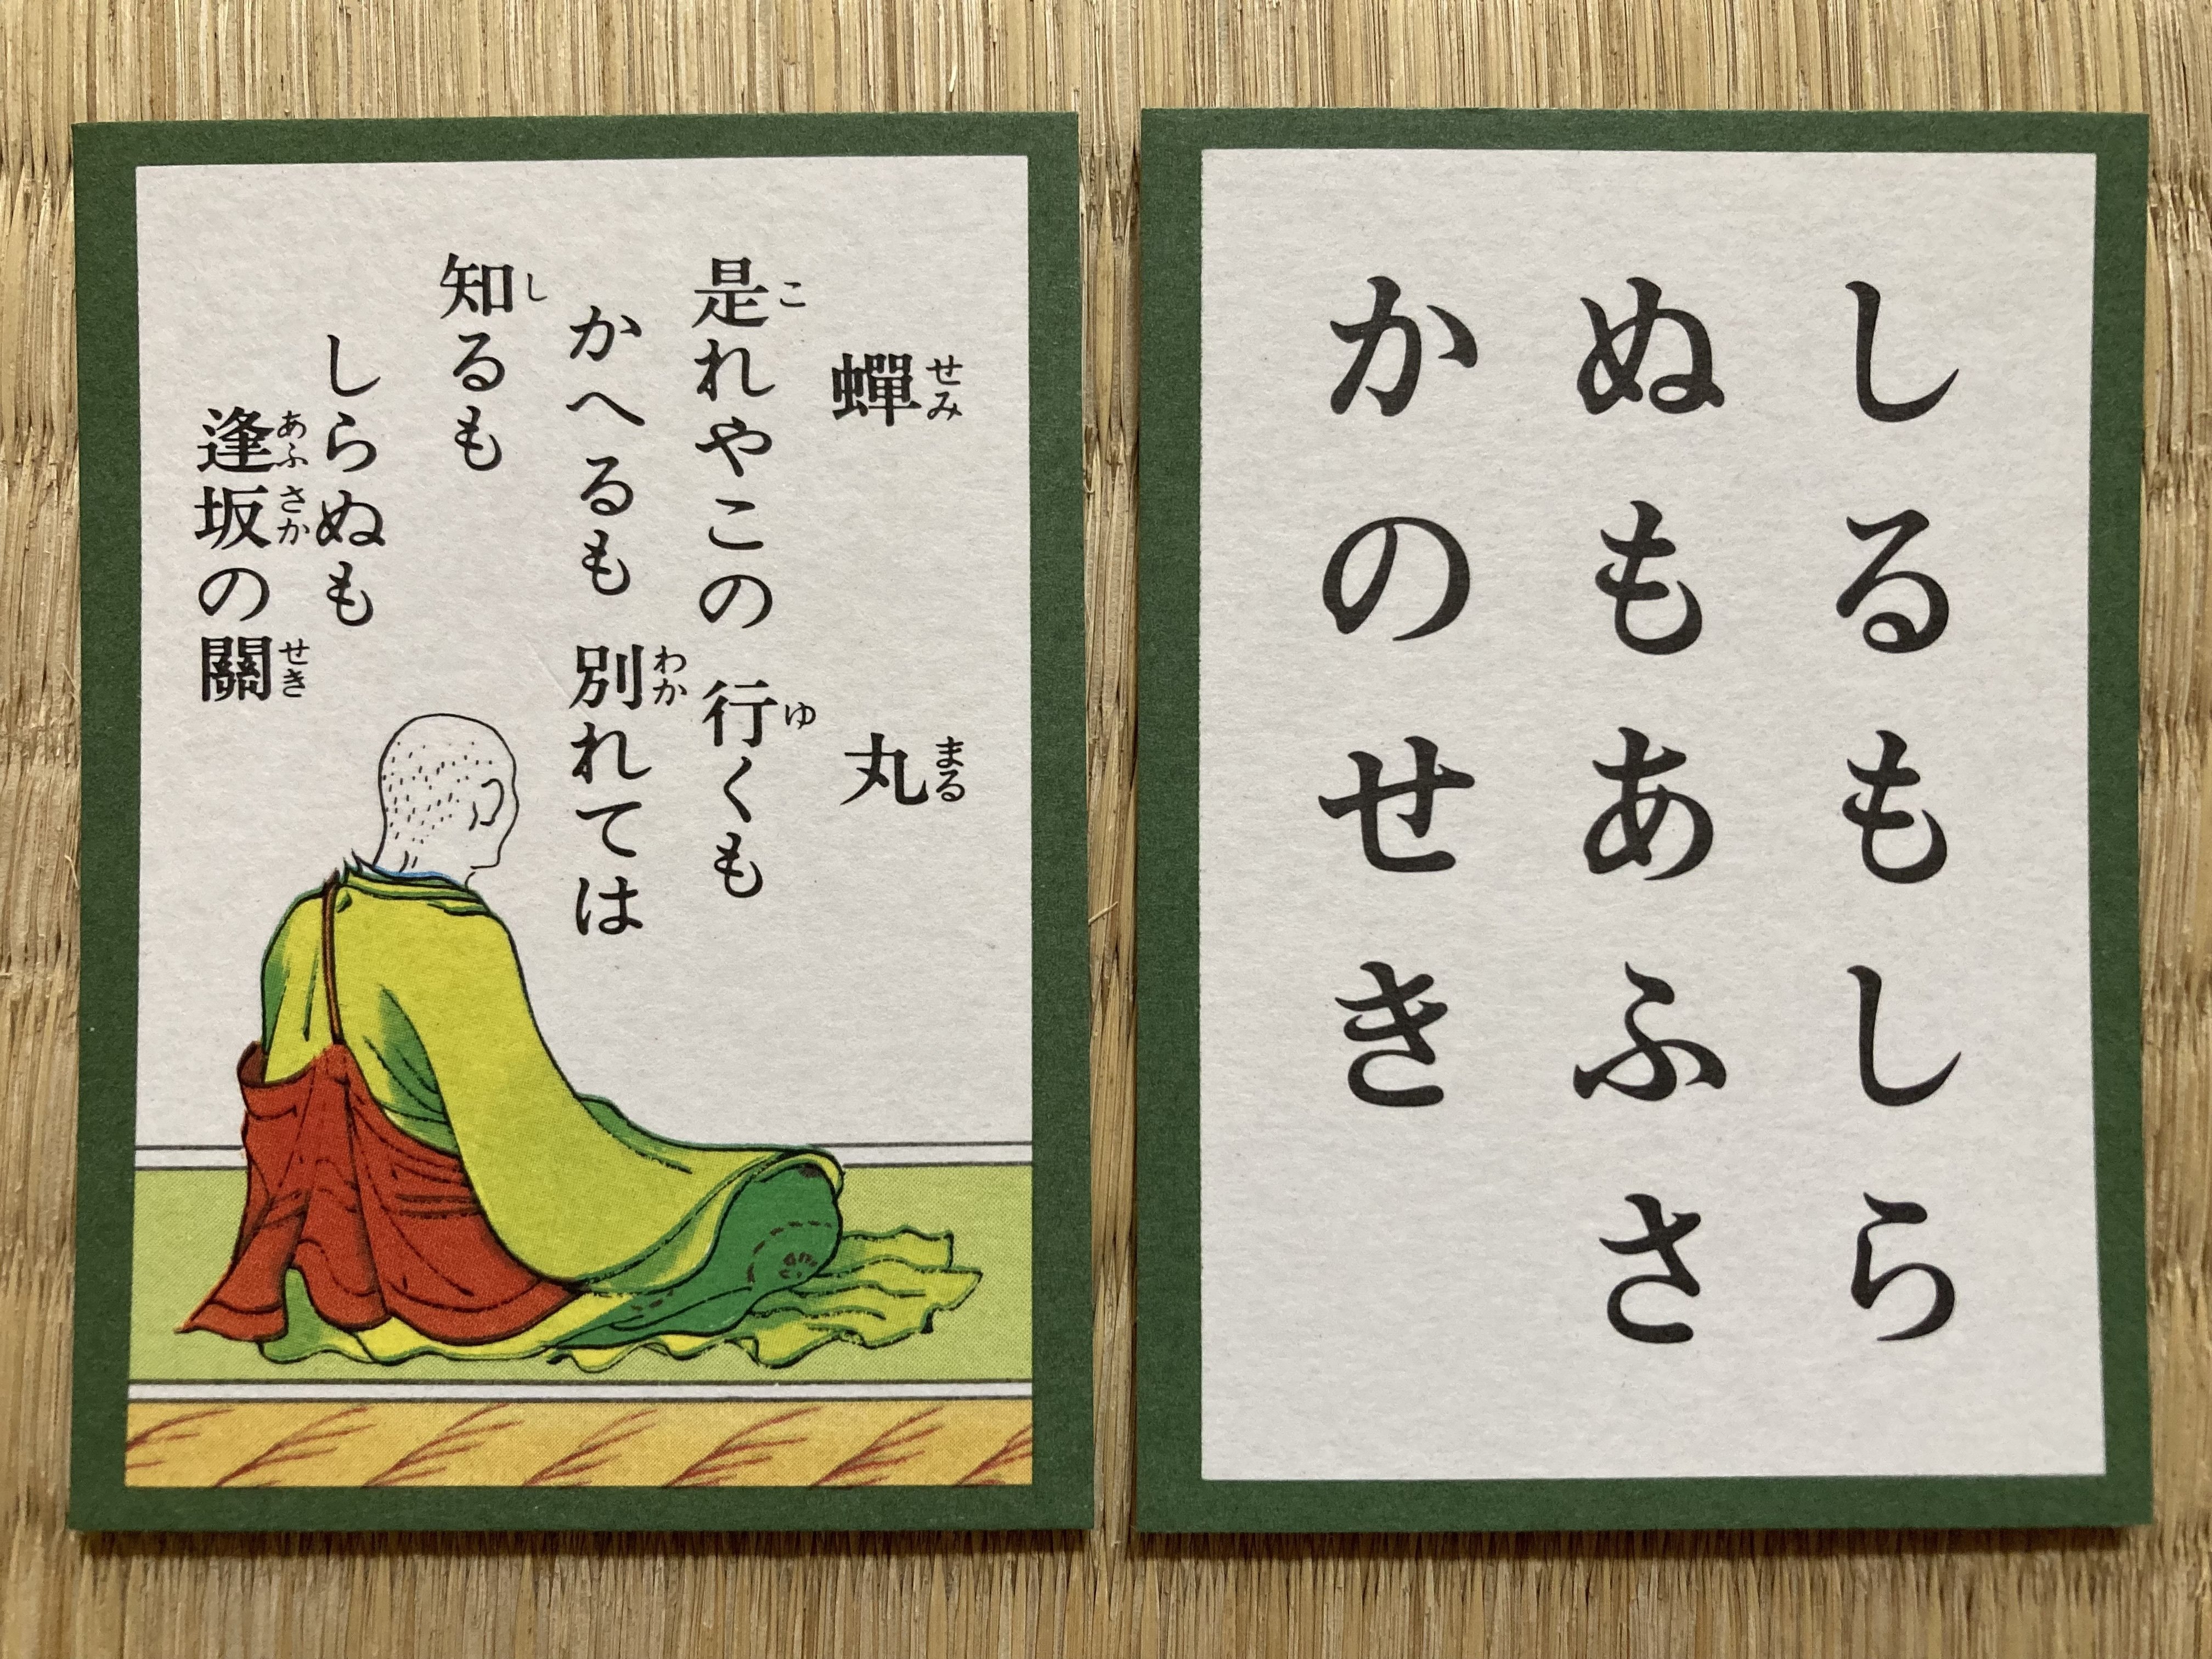 蟬丸
是れやこの 行くも
かへるも 別れては
知るも
しらぬも
逢坂の關
せみ
まる
こ
ゆ
わか
し
あふ
さか
せき
しるもしら
ぬもあふさ
かのせき